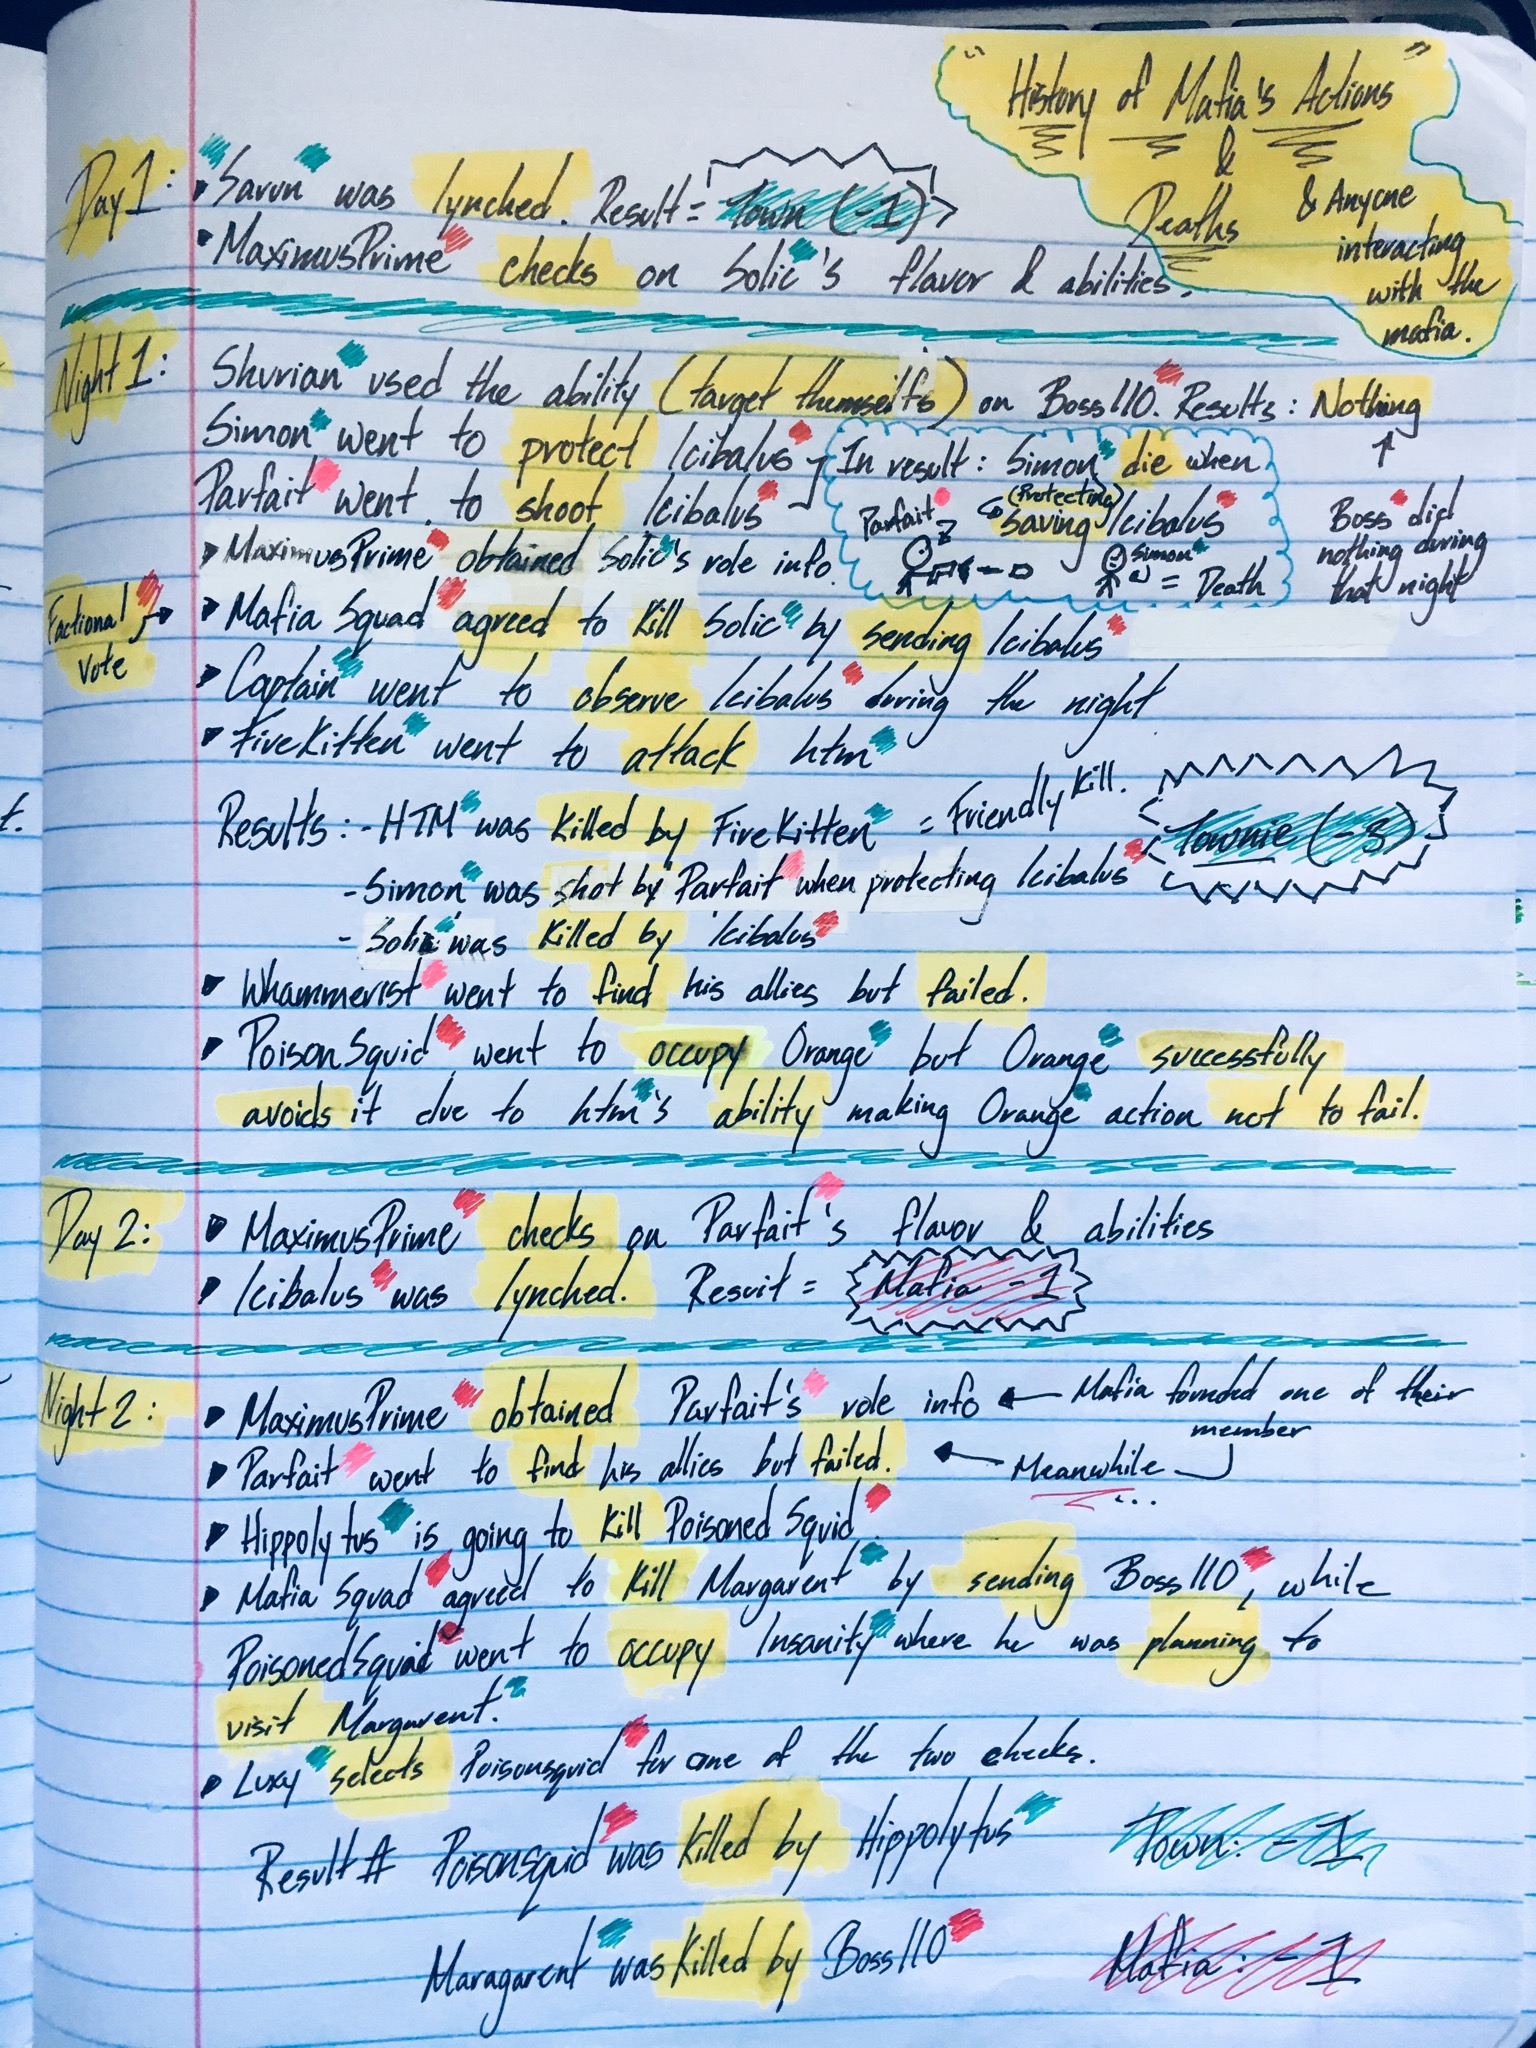 "History of Mafia's Actions"
&
Deaths
& Anyone
interacting
with the
mafia.
Day 1: Savun was lynched. Result = Town (-1)
MaximusPrime checks on Solic's flavor & abilities.
Night 1: Shurian used the ability (target themselfs) on Boss110. Results: Nothing
Simon went to protect Icibalus
Parfait went to shoot Icibalus
In result: Simon die when
(Protecting)
saving Icibalus
Parfait
Simon
= Death
Boss did
nothing during
that night
MaximusPrime obtained Solic's role info.
Factional
vote
Mafia Squad agreed to kill Solic by sending Icibalus
Captain went to observe Icibalus during the night
FireKitten went to attack htm
Results: - HTM was killed by FireKitten = Friendly Kill.
Townie (-3)
- Simon was shot by Parfait when protecting Icibalus
- Solic was killed by Icibalus
Whammerist went to find his allies but failed.
PoisonSquid went to occupy Orange but Orange successfully
avoids it due to htm's ability making Orange action not to fail.
Day 2: MaximusPrime checks on Parfait's flavor & abilities
Icibalus was lynched. Result = Mafia -1
Night 2: MaximusPrime obtained Parfait's role info ← Mafia founded one of their
member
Parfait went to find his allies but failed. ← Meanwhile
...
Hippolytus is going to kill Poisoned Squid.
Mafia Squad agreed to kill Margarent by sending Boss110, while
PoisonedSquid went to occupy Insanity where he was planning to
visit Margarent.
Luxy selects Poisonsquid for one of the two checks.
Result # Poisonsquid was killed by Hippolytus Town: -1
Maragarent was killed by Boss110 Mafia: -1